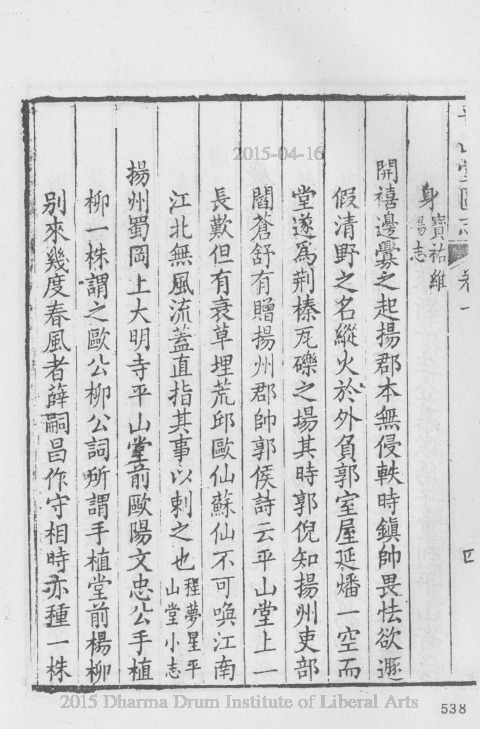 平山堂圖志 卷一
四
身 寶祐維
揚志
開禧邊釁之起揚郡本無侵軼時鎮帥畏怯欲遯
假清野之名縱火於外負郭室屋延燔一空而
堂遂為荆榛瓦礫之場其時郭倪知揚州吏部
閻蒼舒有贈揚州郡帥郭侯詩云平山堂上一
長歎但有衰草埋荒邱歐仙蘇仙不可喚江南
江北無風流蓋直指其事以刺之也 程夢星平
山堂小志
揚州蜀岡上大明寺平山堂前歐陽文忠公手植
柳一株謂之歐公柳公詞所謂手植堂前楊柳
别來幾度春風者薛嗣昌作守相時亦種一株
2015-04-16
2015 Dharma Drum Institute of Liberal Arts
538